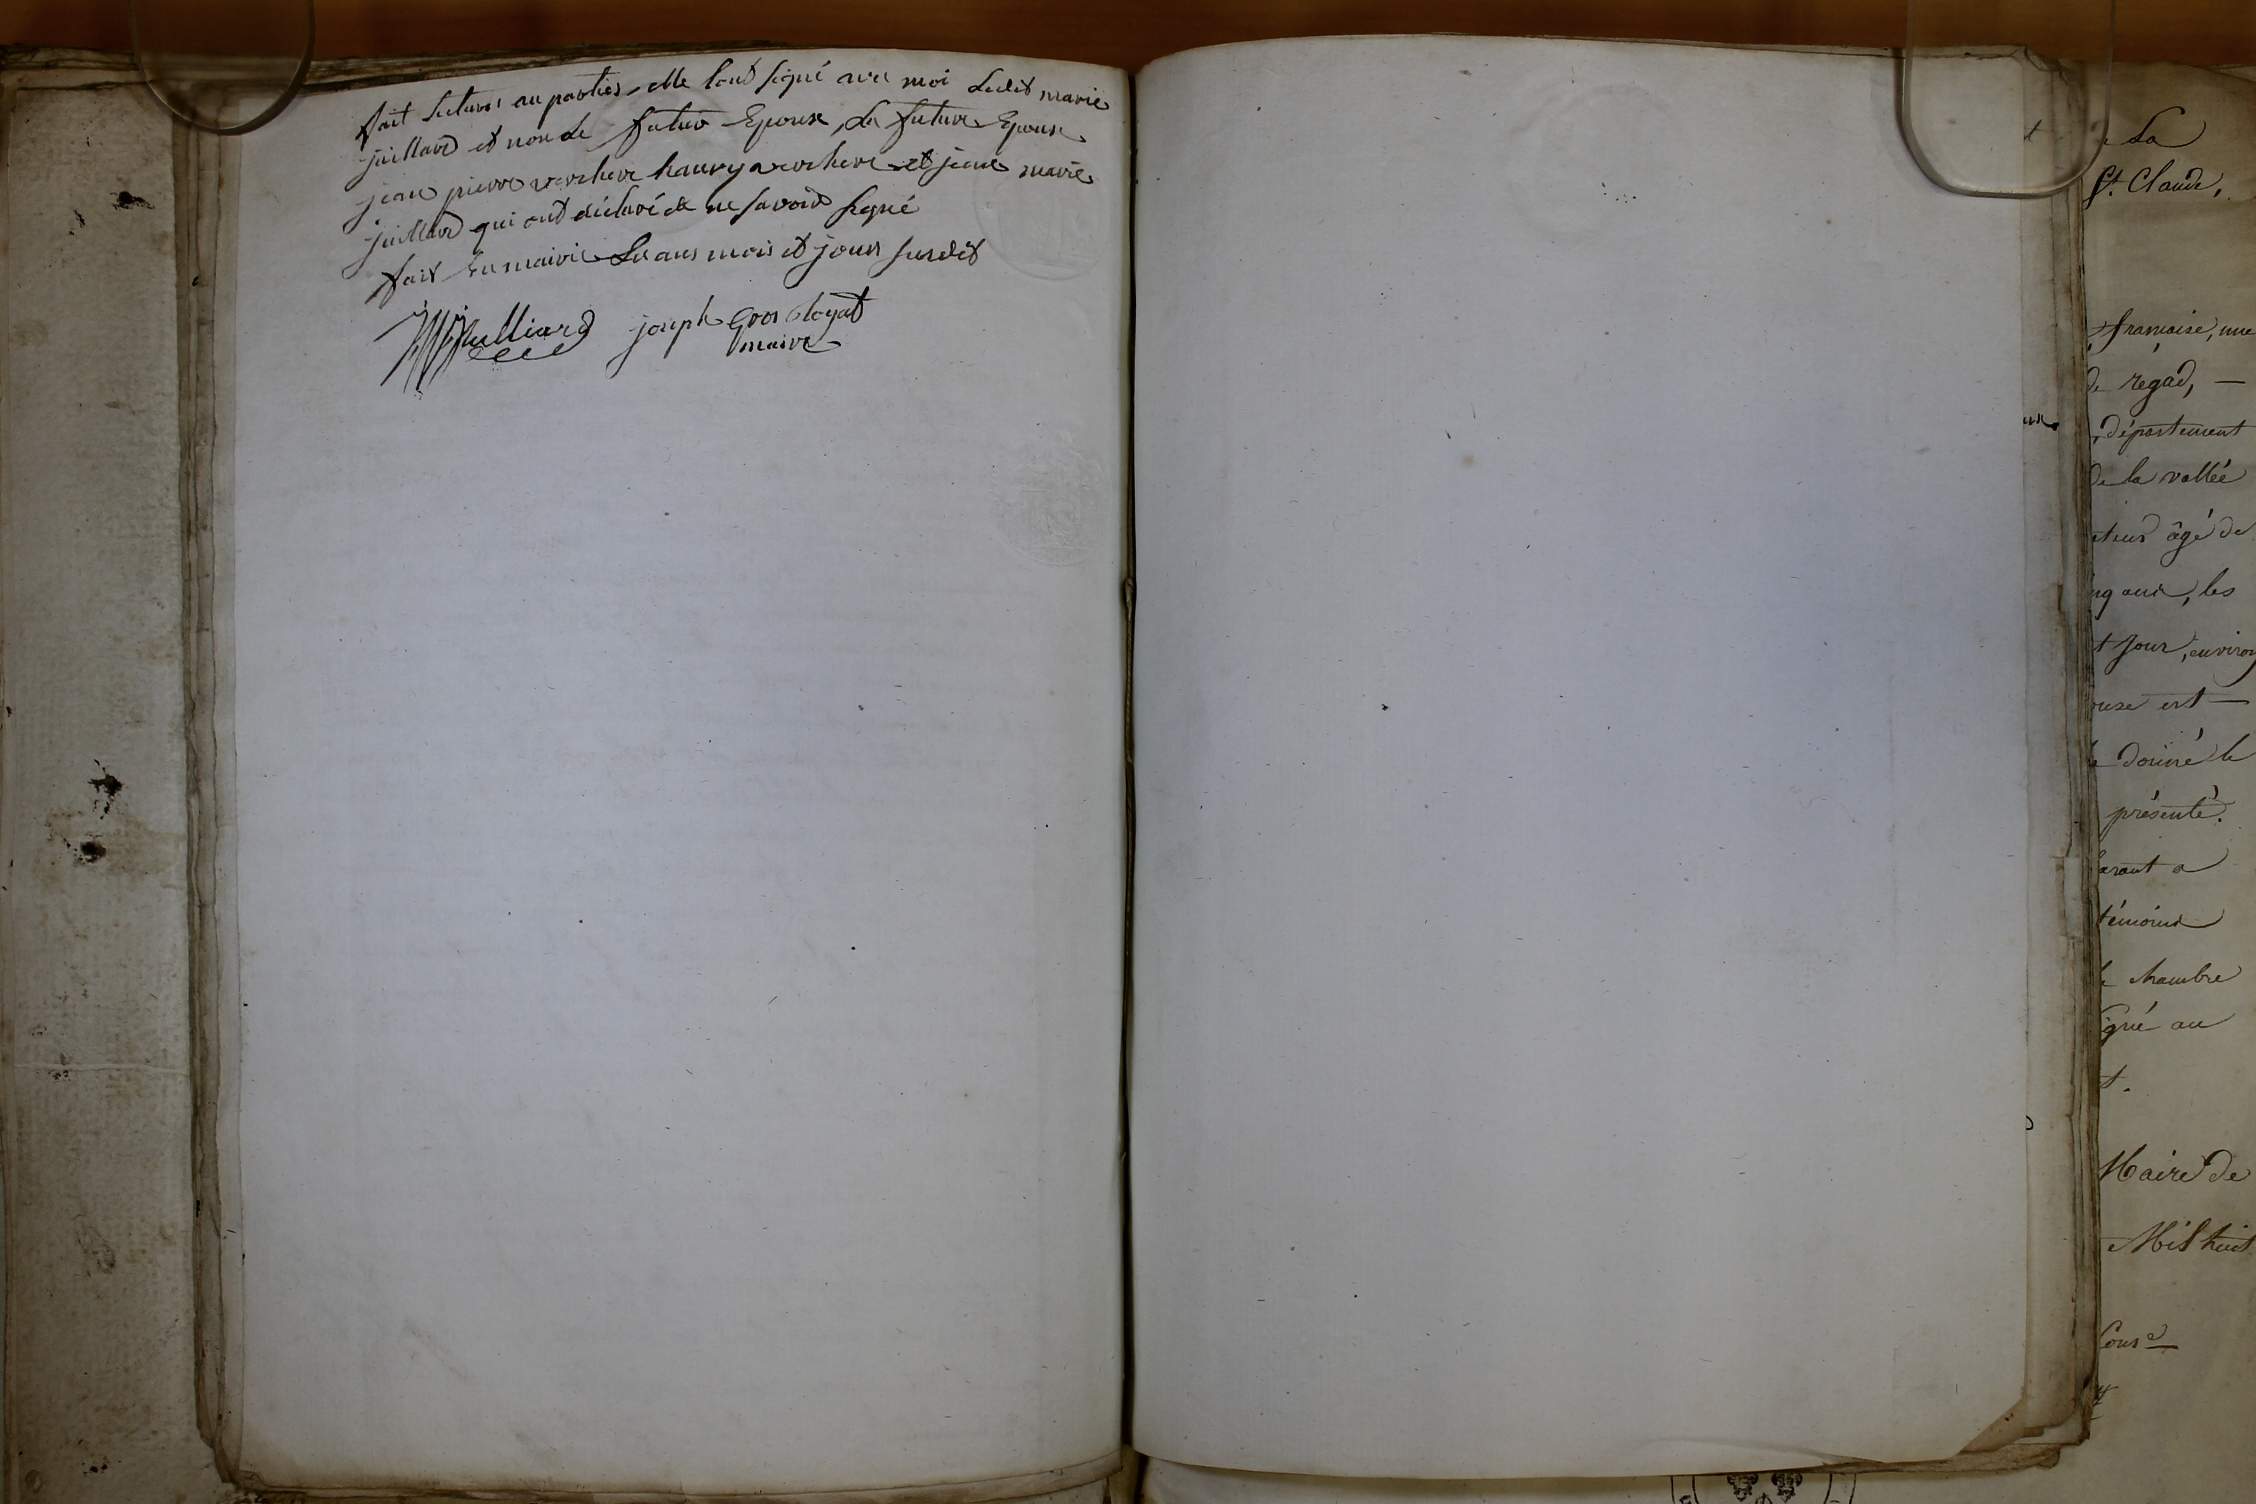 fait lecture au parties elle lont signé avec moi ledit marie
juillard et non le futur Epoux, la future Epouse
jean pierre verchere hanry verchere et jean marie
juillard qui ont déclaré de ne savoir signé
fait En mairie Les ans mois et jour susdit
Juilliard joseph Gros
maire
La
St. Claude,
française, une
de regad, —
département
de la vallée
âgé de
ans, les
jour, environ
est —
donné le
présenté.
a
témoins
chambre
signé au
Maire de
Mil huit